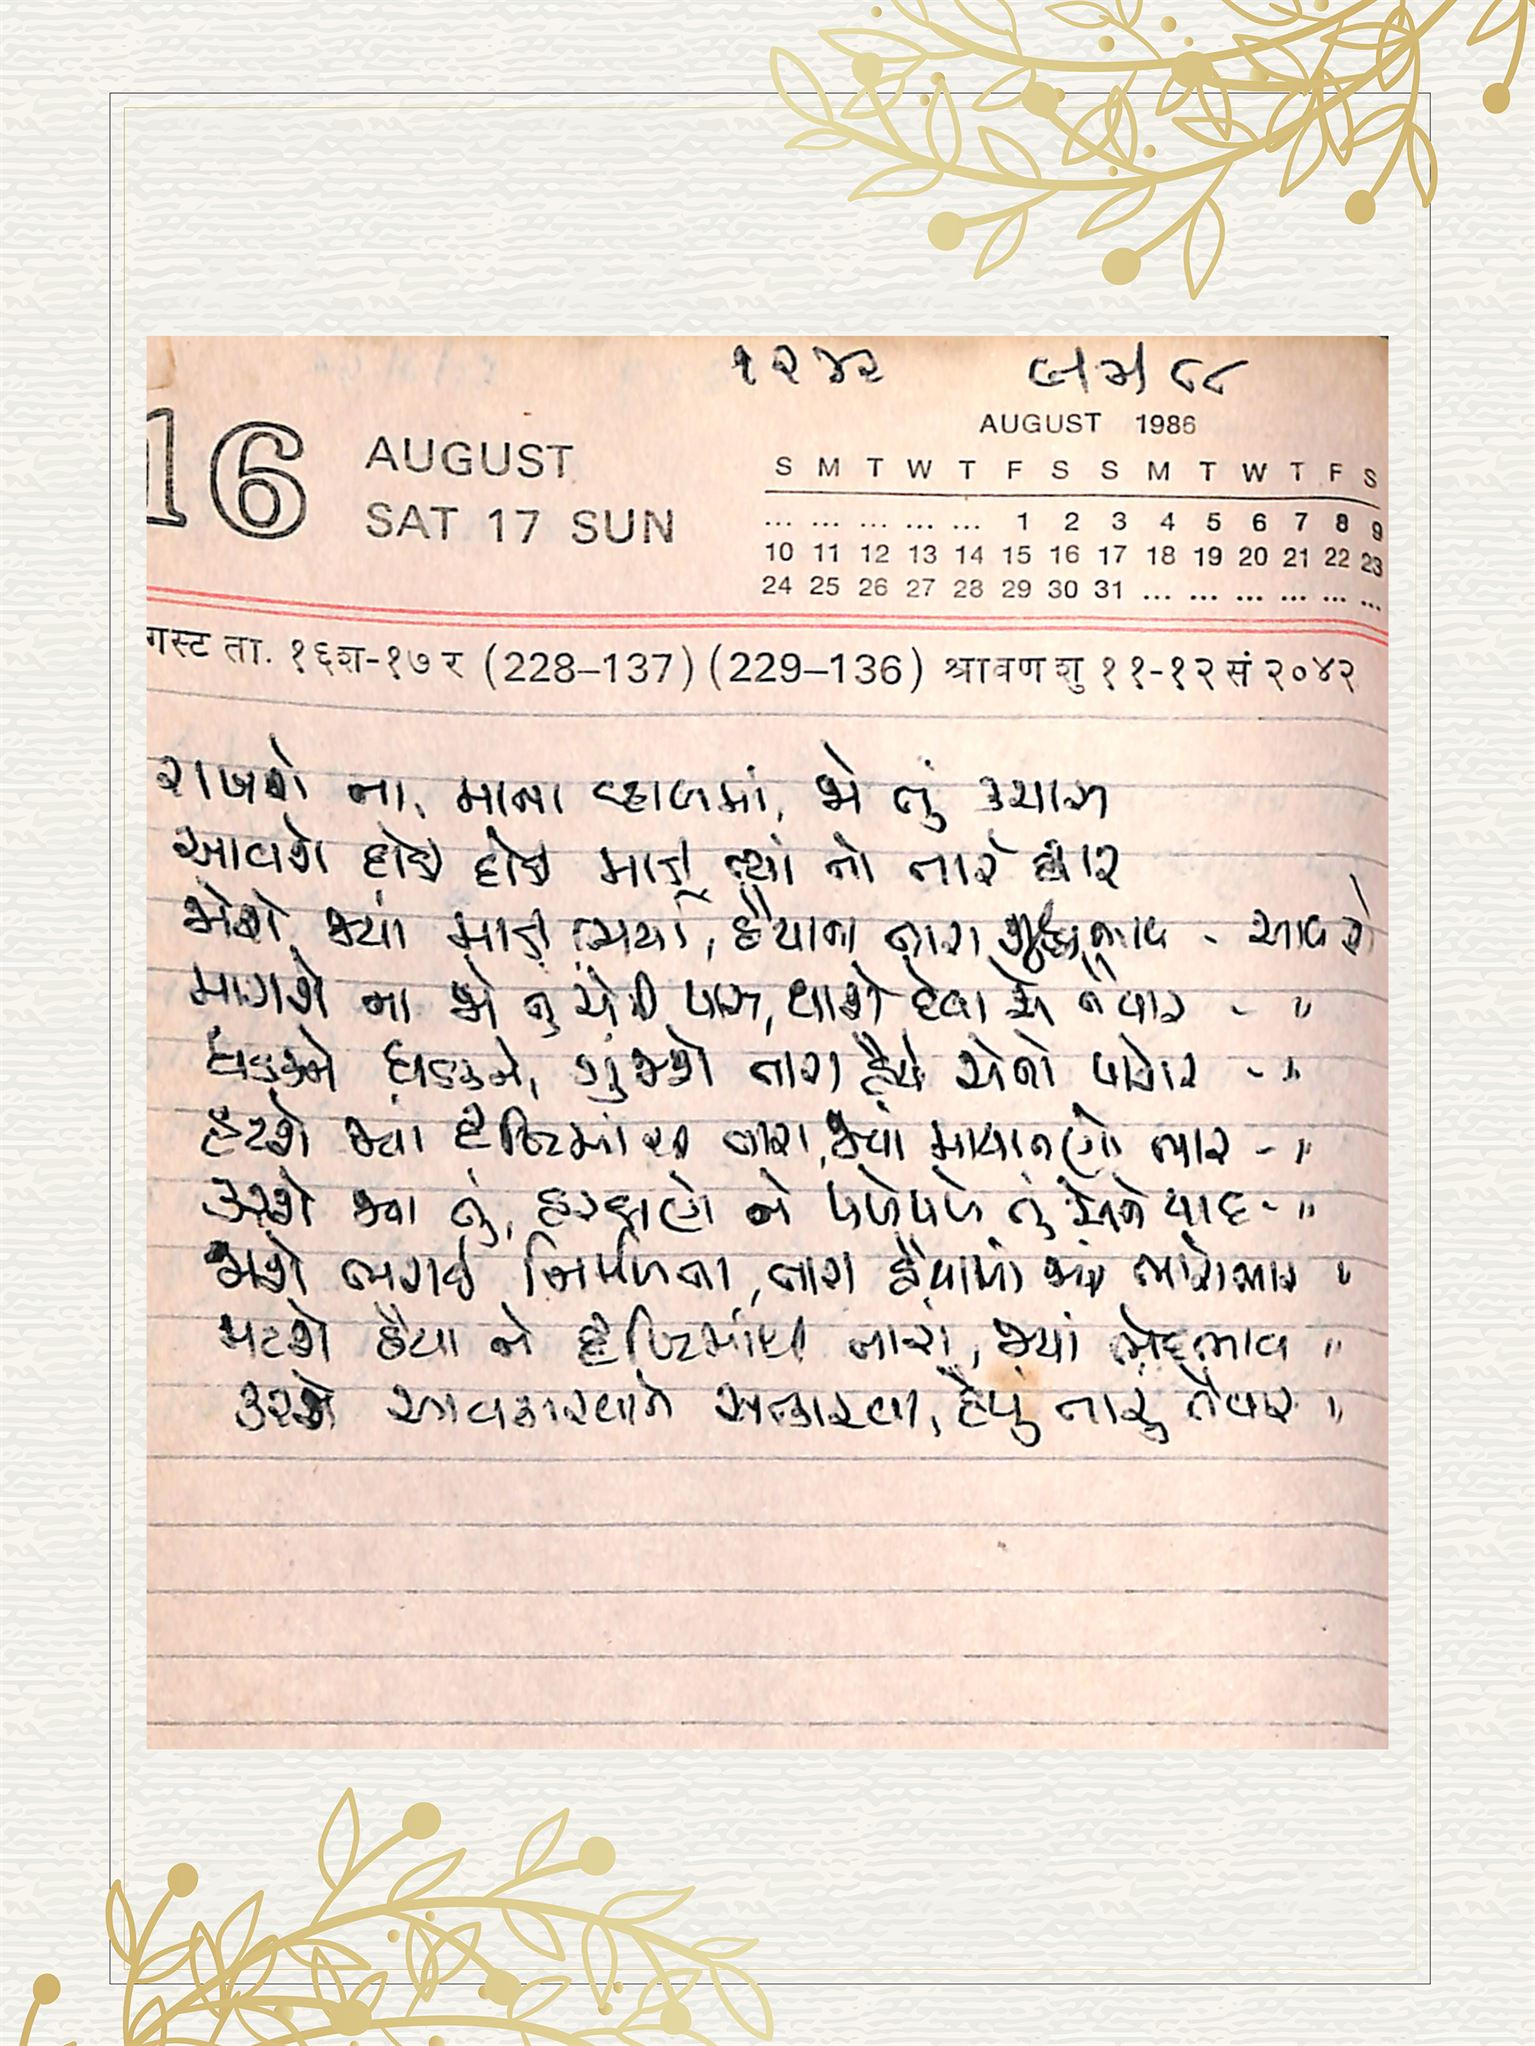 ૧૨૪૨
16
AUGUST
SAT 17 SUN
AUGUST 1986
S M T W T F S S M T W T F S
... ... ... ... ... 1 2 3 4 5 6 7 8 9
10 11 12 13 14 15 16 17 18 19 20 21 22 23
24 25 26 27 28 29 30 31 ... ... ... ... ... ...
गस्ट ता. १६श-१७र (228–137) (229–136) श्रावण शु ११-१२ सं २०४२
રાખશે ના, માના વ્હાલમાં, જો તું કચાશ
આવશે દોડી દોડી માડી ત્યાં તો તારે દ્વાર
જોશે જ્યાં માડી ભર્યા, હૈયાના તારા શુદ્ધ ભાવ - આવશે
માગશે ના જો તું એની પાસ, થાશે દેવા એ તૈયાર - "
ધડકને ધડકને, ગુંજશે તારા હૈયે એનો પોકાર - "
હટશે જ્યાં દૃષ્ટિમાંથી તારા, જ્યાં માયાતણો ભાર - "
કરશે જ્યાં તું, હરક્ષણે ને પળેપળે તું એને યાદ - "
જાશે નિર્મળતા, તારા હૈયામાં ભારોભાર "
મટશે હૈયા ને દૃષ્ટિમાંથી તારા, જ્યાં ભેદભાવ "
કરશે આવકારવાને સત્કારવા, હૈયું તારું તૈયાર "